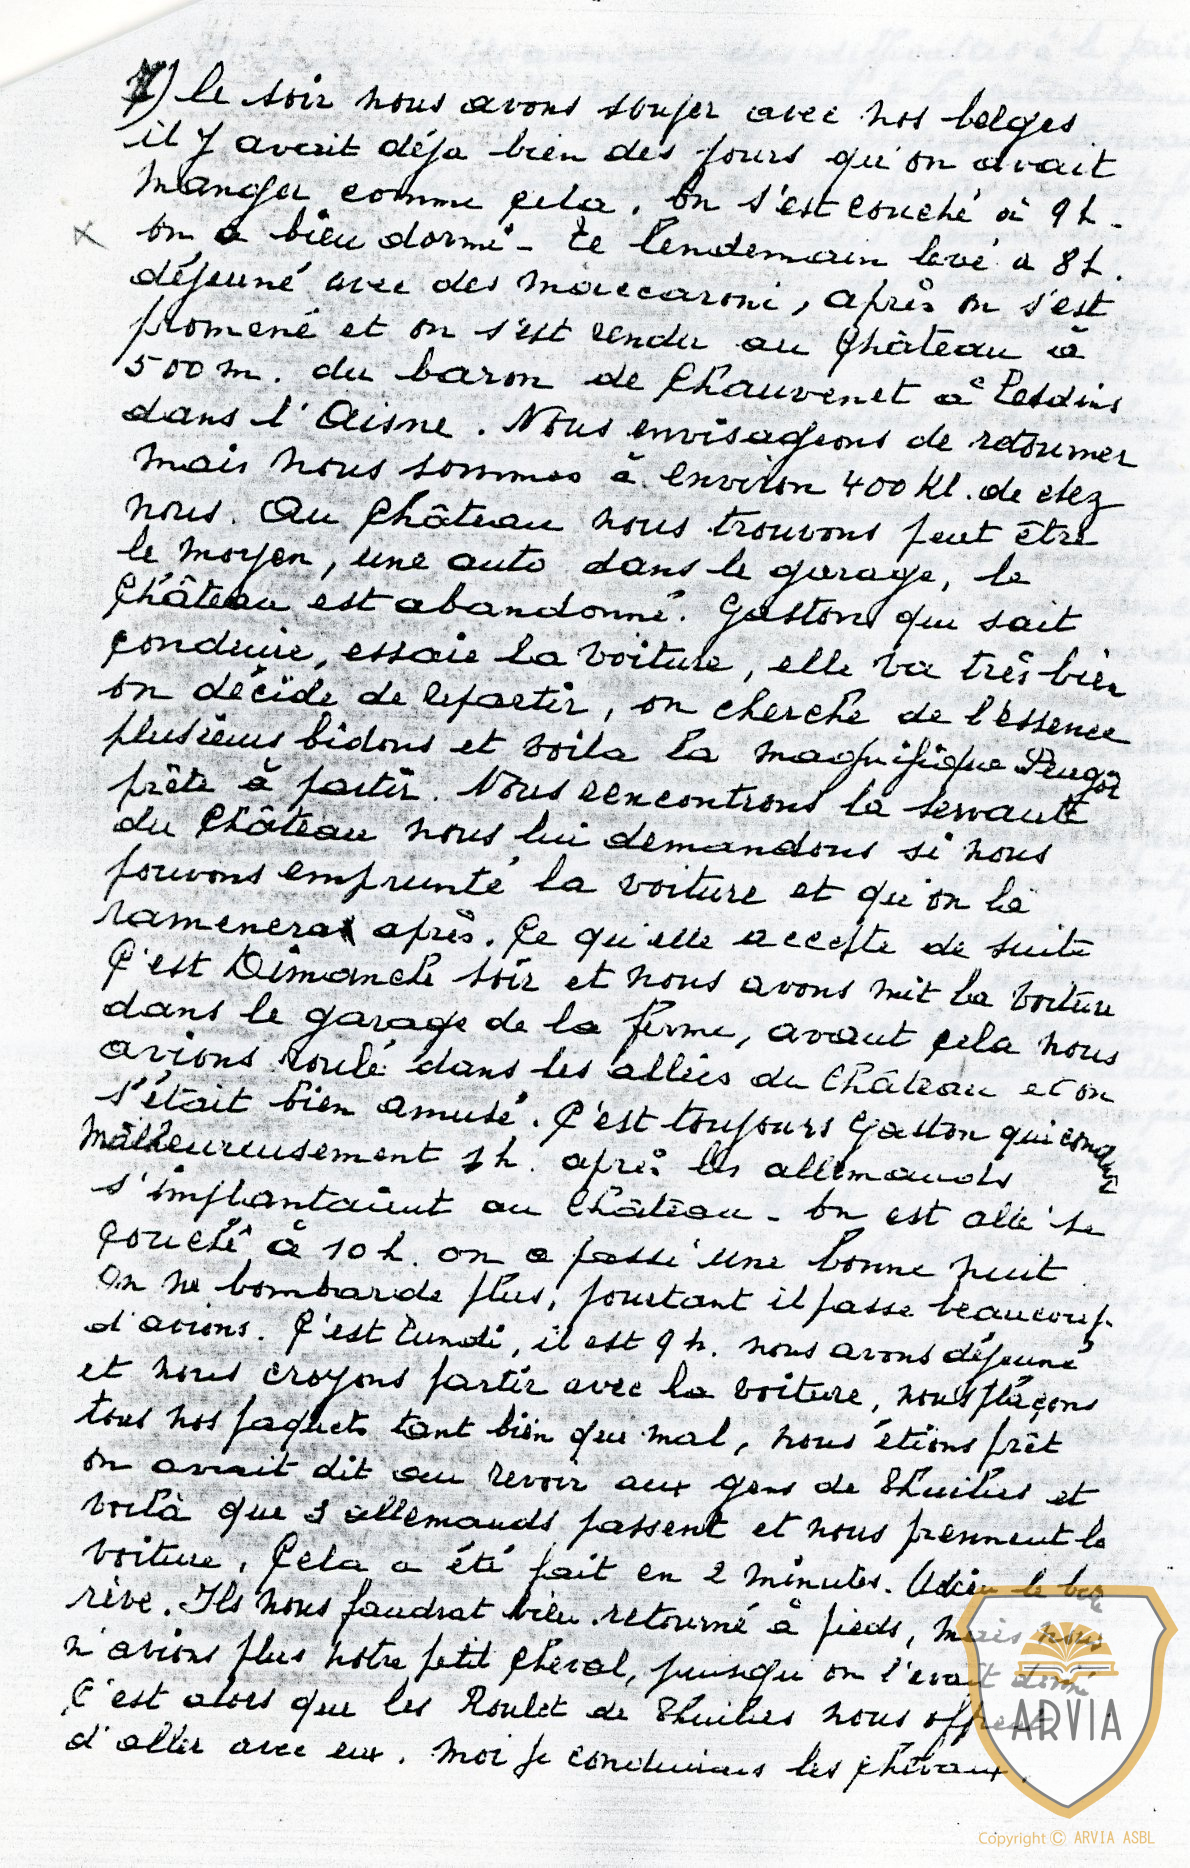 7) Le soir nous avons souper avec nos belges
il y avait déja bien des jours qu'on avait
manger comme cela. On s'est couché à 9 h.
on a bien dormi - Le lendemain levé à 8 h.
déjeuné avec des maccaroni, après on s'est
promené et on s'est rendu au Château à
500 m. du baron de Chauvenet à Lesdins
dans l'Aisne. Nous envisageons de retourner
mais nous sommes à environ 400 Kl. de chez
nous. Au Château nous trouvons peut être
le moyen, une auto dans le garage, le
Château est abandonné. Gaston qui sait
conduire, essaie la voiture, elle va très bien
on décide de repartir, on cherche de l'essence
plusieurs bidons et voila la magnifique Peugot
prête à partir. Nous rencontrons la servante
du Château nous lui demandons si nous
pouvons emprunté la voiture et qu'on la
ramenera après. Ce qu'elle accepte de suite
C'est Dimanche soir et nous avons mit la voiture
dans le garage de la ferme, avant cela nous
avions roulé dans les allées du Château et on
s'était bien amusé. C'est toujours Gaston qui conduit
Malheureusement 1 h. après les allemands
s'implantaient au Château - On est allé se
couché à 10 h. on a passé une bonne nuit
On ne bombarde plus, pourtant il passe beaucoup
d'avions. C'est Lundi, il est 9 h. nous avons déjeuné
et nous croyons partir avec la voiture, nous plaçons
tous nos paquets tant bien que mal, nous étions prêt
on avait dit au revoir aux gens de Thuilies et
voilà que 3 allemands passent et nous prennent la
voiture. Cela a été fait en 2 minutes. Adieu le beau
rêve. Ils nous faudrat bien retourné à pieds, mais nous
n'avions plus notre petit cheval, puisqu'on l'avait donné
C'est alors que les Roulet de Thuilies nous offrent
d'aller avec eux. Moi je conduisais les chevaux.
ARVIA
Copyright © ARVIA ASBL